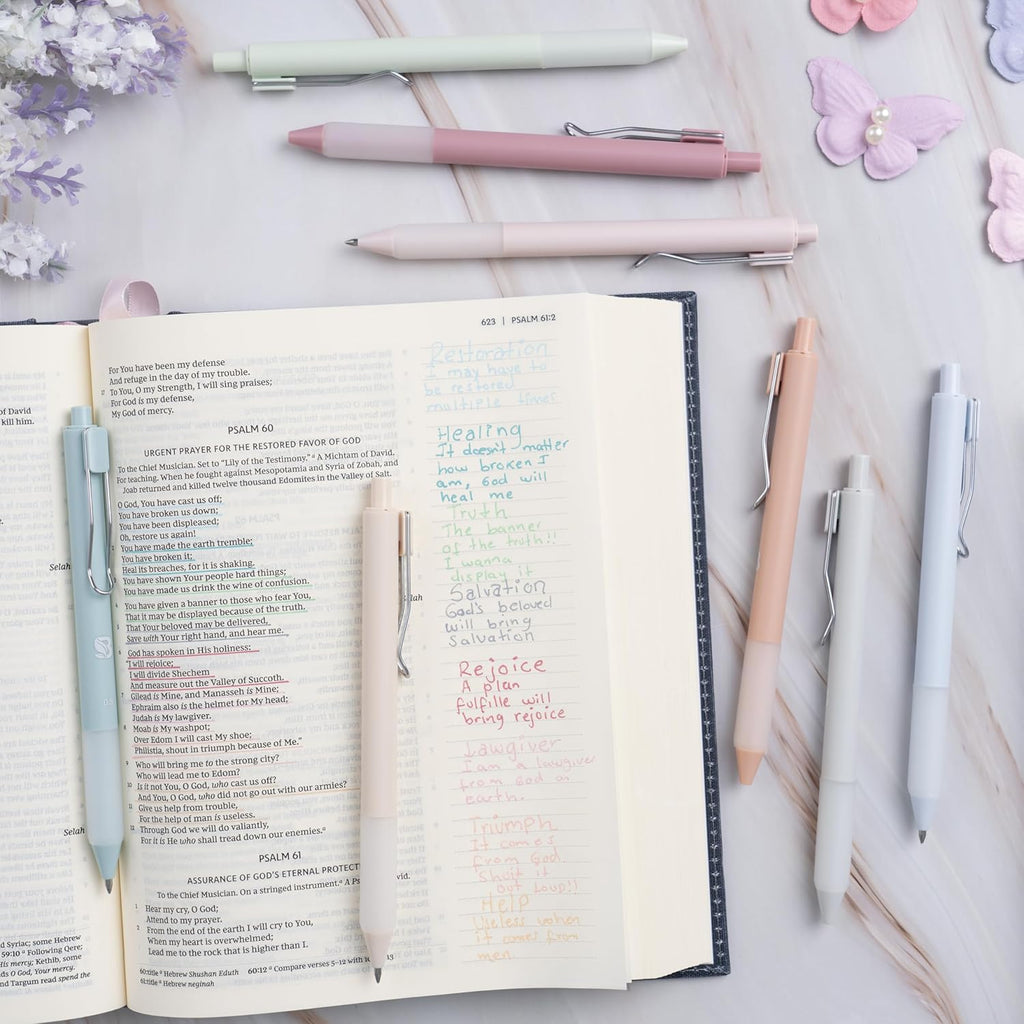 of David
kill him.
Selah
Selah
d Syriac; some Hebrew
59:10 ᵃ Following Qere;
His mercy; Kethib, some
ds O God, Your mercy.
nd Targum read spend the
623 | PSALM 61:2
For You have been my defense
And refuge in the day of my trouble.
17 To You, O my Strength, I will sing praises;
For God is my defense,
My God of mercy.
PSALM 60
URGENT PRAYER FOR THE RESTORED FAVOR OF GOD
To the Chief Musician. Set to "Lily of the Testimony."ᵃ A Michtam of David.
For teaching. When he fought against Mesopotamia and Syria of Zobah, and
Joab returned and killed twelve thousand Edomites in the Valley of Salt.
O God, You have cast us off;
You have broken us down;
You have been displeased;
Oh, restore us again!
You have made the earth tremble;
You have broken it;
Heal its breaches, for it is shaking.
You have shown Your people hard things;
You have made us drink the wine of confusion.
4 You have given a banner to those who fear You,
That it may be displayed because of the truth.
lah
5 That Your beloved may be delivered,
Save with Your right hand, and hear me.
6 God has spoken in His holiness:
"I will rejoice;
I will divide Shechem
And measure out the Valley of Succoth.
7 Gilead is Mine, and Manasseh is Mine;
Ephraim also is the helmet for My head;
Judah is My lawgiver.
8 Moab is My washpot;
Over Edom I will cast My shoe;
Philistia, shout in triumph because of Me."
9 Who will bring me to the strong city?
Who will lead me to Edom?
10 Is it not You, O God, who cast us off?
And You, O God, who did not go out with our armies?
11 Give us help from trouble,
For the help of man is useless.
12 Through God we will do valiantly,
For it is He who shall tread down our enemies.ᵃ
PSALM 61
ASSURANCE OF GOD'S ETERNAL PROTECT
To the Chief Musician. On a stringed instrument.ᵃ A Ps vid.
1 Hear my cry, O God;
Attend to my prayer.
2 From the end of the earth I will cry to You,
When my heart is overwhelmed;
Lead me to the rock that is higher than I.
60:title ᵃ Hebrew Shushan Eduth 60:12 ᵃ Compare verses 5–12 with 13
61:title ᵃ Hebrew neginah
Restoration
I may have to
be restored
multiple times
Healing
It doesn't matter
how broken I
am, God will
heal me
Truth
The banner
of the truth!!
I wanna
display it
Salvation
God's beloved
will bring
Salvation
Rejoice
A plan
fulfille will
bring rejoice
Lawgiver
I am a lawgiver
from God on
earth.
Triumph
It comes
from God.
Shout it
out loud!!
HELP
Useless when
it comes from
men.